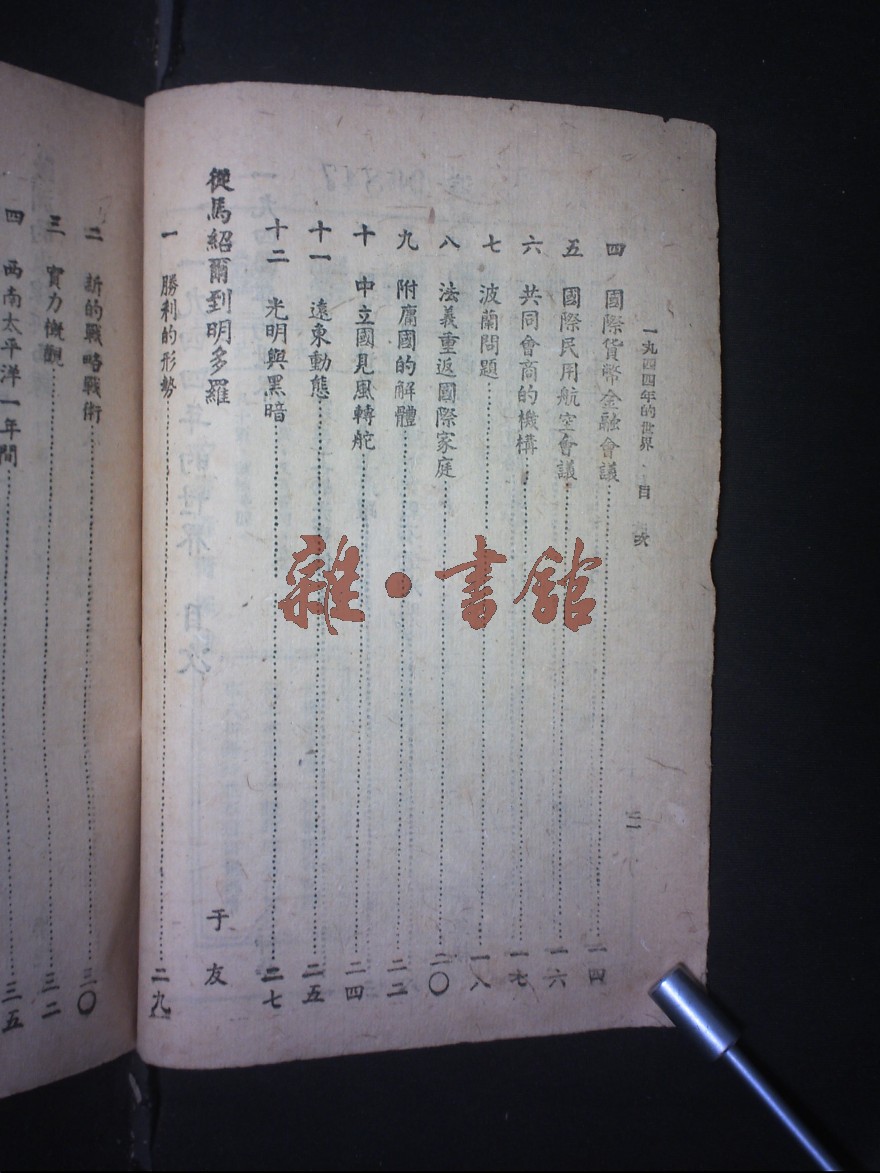 一九四四年的世界 目次
二
四 國際貨幣金融會議 一四
五 國際民用航空會議 一六
六 共同會商的機構 一七
七 波蘭問題 一八
八 法義重返國際家庭 二〇
九 附庸國的解體 二二
十 中立國見風轉舵 二四
十一 遠東動態 二五
十二 光明與黑暗 二七
從馬紹爾到明多羅 于友
一 勝利的形勢 二九
二 新的戰略戰術 三〇
三 實力概觀 三二
四 西南太平洋一年間 三五
雜·書館